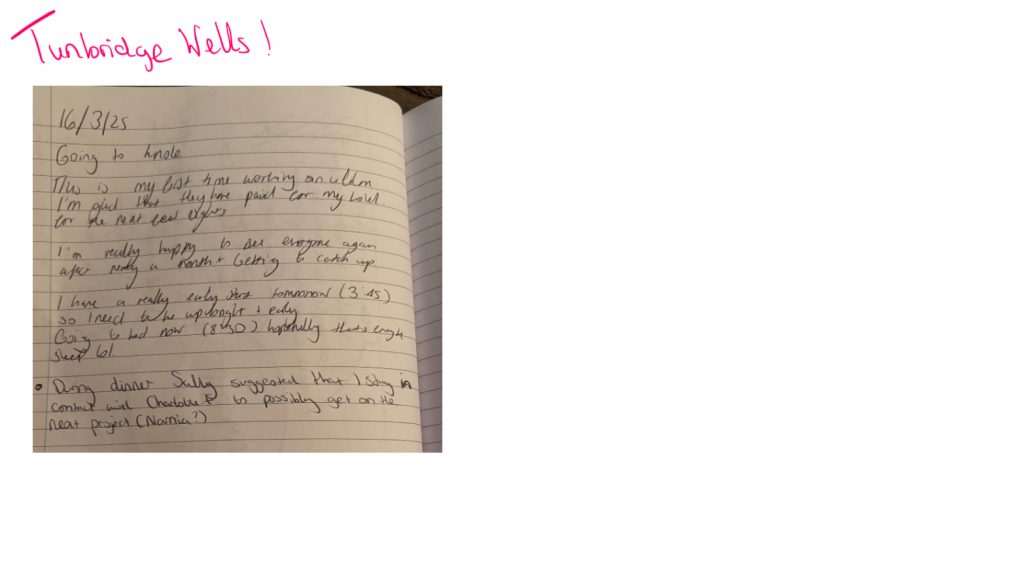 Tunbridge Wells!
16/3/25
Going to knole
This is my last time working on
I'm glad that they have paid for my hotel
for the next few nights
I'm really happy to see everyone again
after nearly a month + getting to catch up
I have a really early start tommorrow (3:45)
so I need to be up bright + early
Going to bed now (8:30) hopefully that's enough
sleep lol
During dinner Sally suggested that I stay in
contact with Charlotte to possibly get on the
next project (Narnia?)